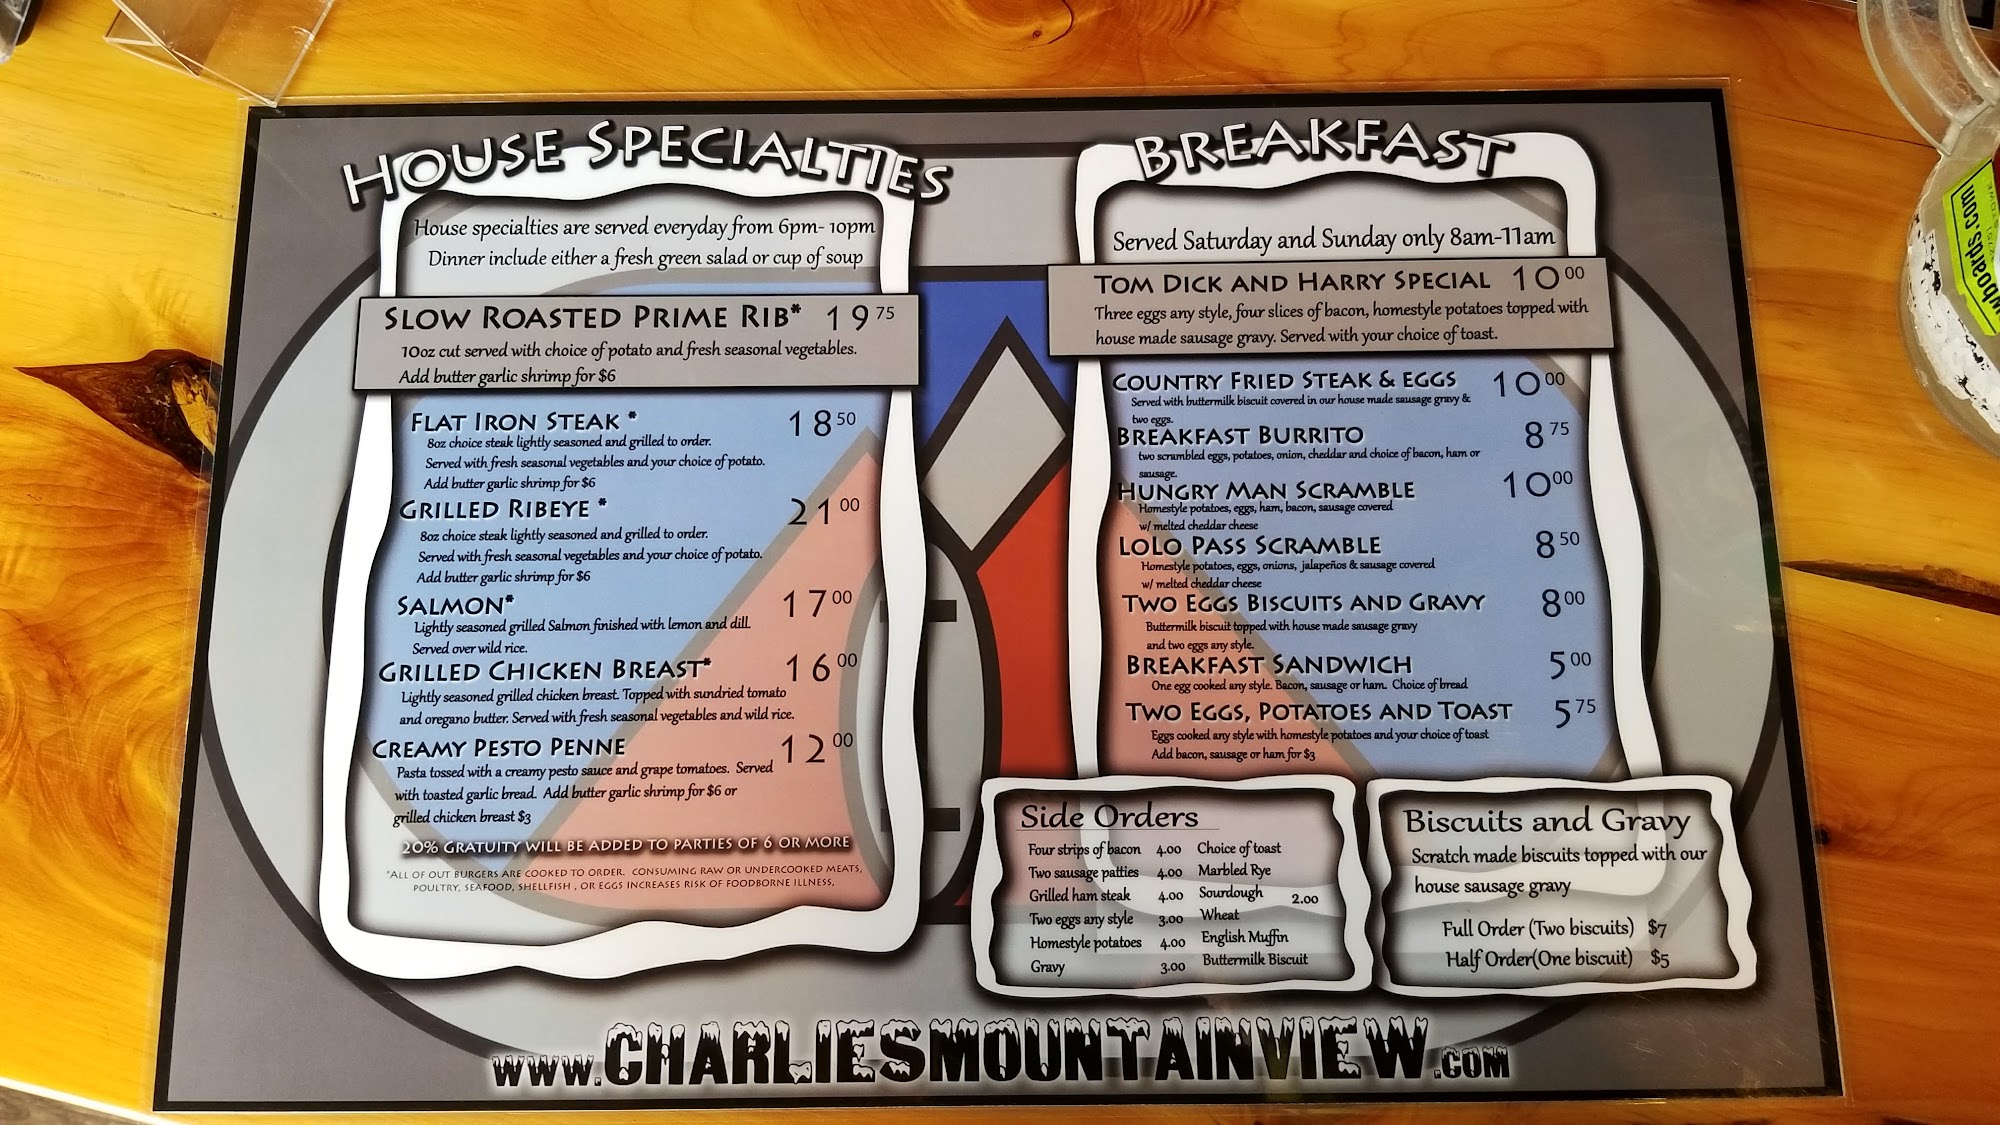 HOUSE SPECIALTIES
House specialties are served everyday from 6pm- 10pm
Dinner include either a fresh green salad or cup of soup
SLOW ROASTED PRIME RIB* 19 75
10oz cut served with choice of potato and fresh seasonal vegetables.
Add butter garlic shrimp for $6
FLAT IRON STEAK * 18 50
8oz choice steak lightly seasoned and grilled to order.
Served with fresh seasonal vegetables and your choice of potato.
Add butter garlic shrimp for $6
GRILLED RIBEYE * 21 00
8oz choice steak lightly seasoned and grilled to order.
Served with fresh seasonal vegetables and your choice of potato.
Add butter garlic shrimp for $6
SALMON* 17 00
Lightly seasoned grilled Salmon finished with lemon and dill.
Served over wild rice.
GRILLED CHICKEN BREAST* 16 00
Lightly seasoned grilled chicken breast. Topped with sundried tomato
and oregano butter. Served with fresh seasonal vegetables and wild rice.
CREAMY PESTO PENNE 12 00
Pasta tossed with a creamy pesto sauce and grape tomatoes. Served
with toasted garlic bread. Add butter garlic shrimp for $6 or
grilled chicken breast $3
20% GRATUITY WILL BE ADDED TO PARTIES OF 6 OR MORE
*ALL OF OUT BURGERS ARE COOKED TO ORDER. CONSUMING RAW OR UNDERCOOKED MEATS,
POULTRY, SEAFOOD, SHELLFISH , OR EGGS INCREASES RISK OF FOODBORNE ILLNESS,
BREAKFAST
Served Saturday and Sunday only 8am-11am
TOM DICK AND HARRY SPECIAL 10 00
Three eggs any style, four slices of bacon, homestyle potatoes topped with
house made sausage gravy. Served with your choice of toast.
COUNTRY FRIED STEAK & EGGS 10 00
Served with buttermilk biscuit covered in our house made sausage gravy &
two eggs.
BREAKFAST BURRITO 8 75
two scrambled eggs, potatoes, onion, cheddar and choice of bacon, ham or
sausage.
HUNGRY MAN SCRAMBLE 10 00
Homestyle potatoes, eggs, ham, bacon, sausage covered
w/ melted cheddar cheese
LOLO PASS SCRAMBLE 8 50
Homestyle potatoes, eggs, onions, jalapeños & sausage covered
w/ melted cheddar cheese
TWO EGGS BISCUITS AND GRAVY 8 00
Buttermilk biscuit topped with house made sausage gravy
and two eggs any style.
BREAKFAST SANDWICH 5 00
One egg cooked any style. Bacon, sausage or ham. Choice of bread
TWO EGGS, POTATOES AND TOAST 5 75
Eggs cooked any style with homestyle potatoes and your choice of toast
Add bacon, sausage or ham for $3
Side Orders
Four strips of bacon 4.00
Two sausage patties 4.00
Grilled ham steak 4.00
Two eggs any style 3.00
Homestyle potatoes 4.00
Gravy 3.00
Choice of toast
Marbled Rye
Sourdough 2.00
Wheat
English Muffin
Buttermilk Biscuit
Biscuits and Gravy
Scratch made biscuits topped with our
house sausage gravy
Full Order (Two biscuits) $7
Half Order(One biscuit) $5
www.CHARLIESMOUNTAINVIEW.com